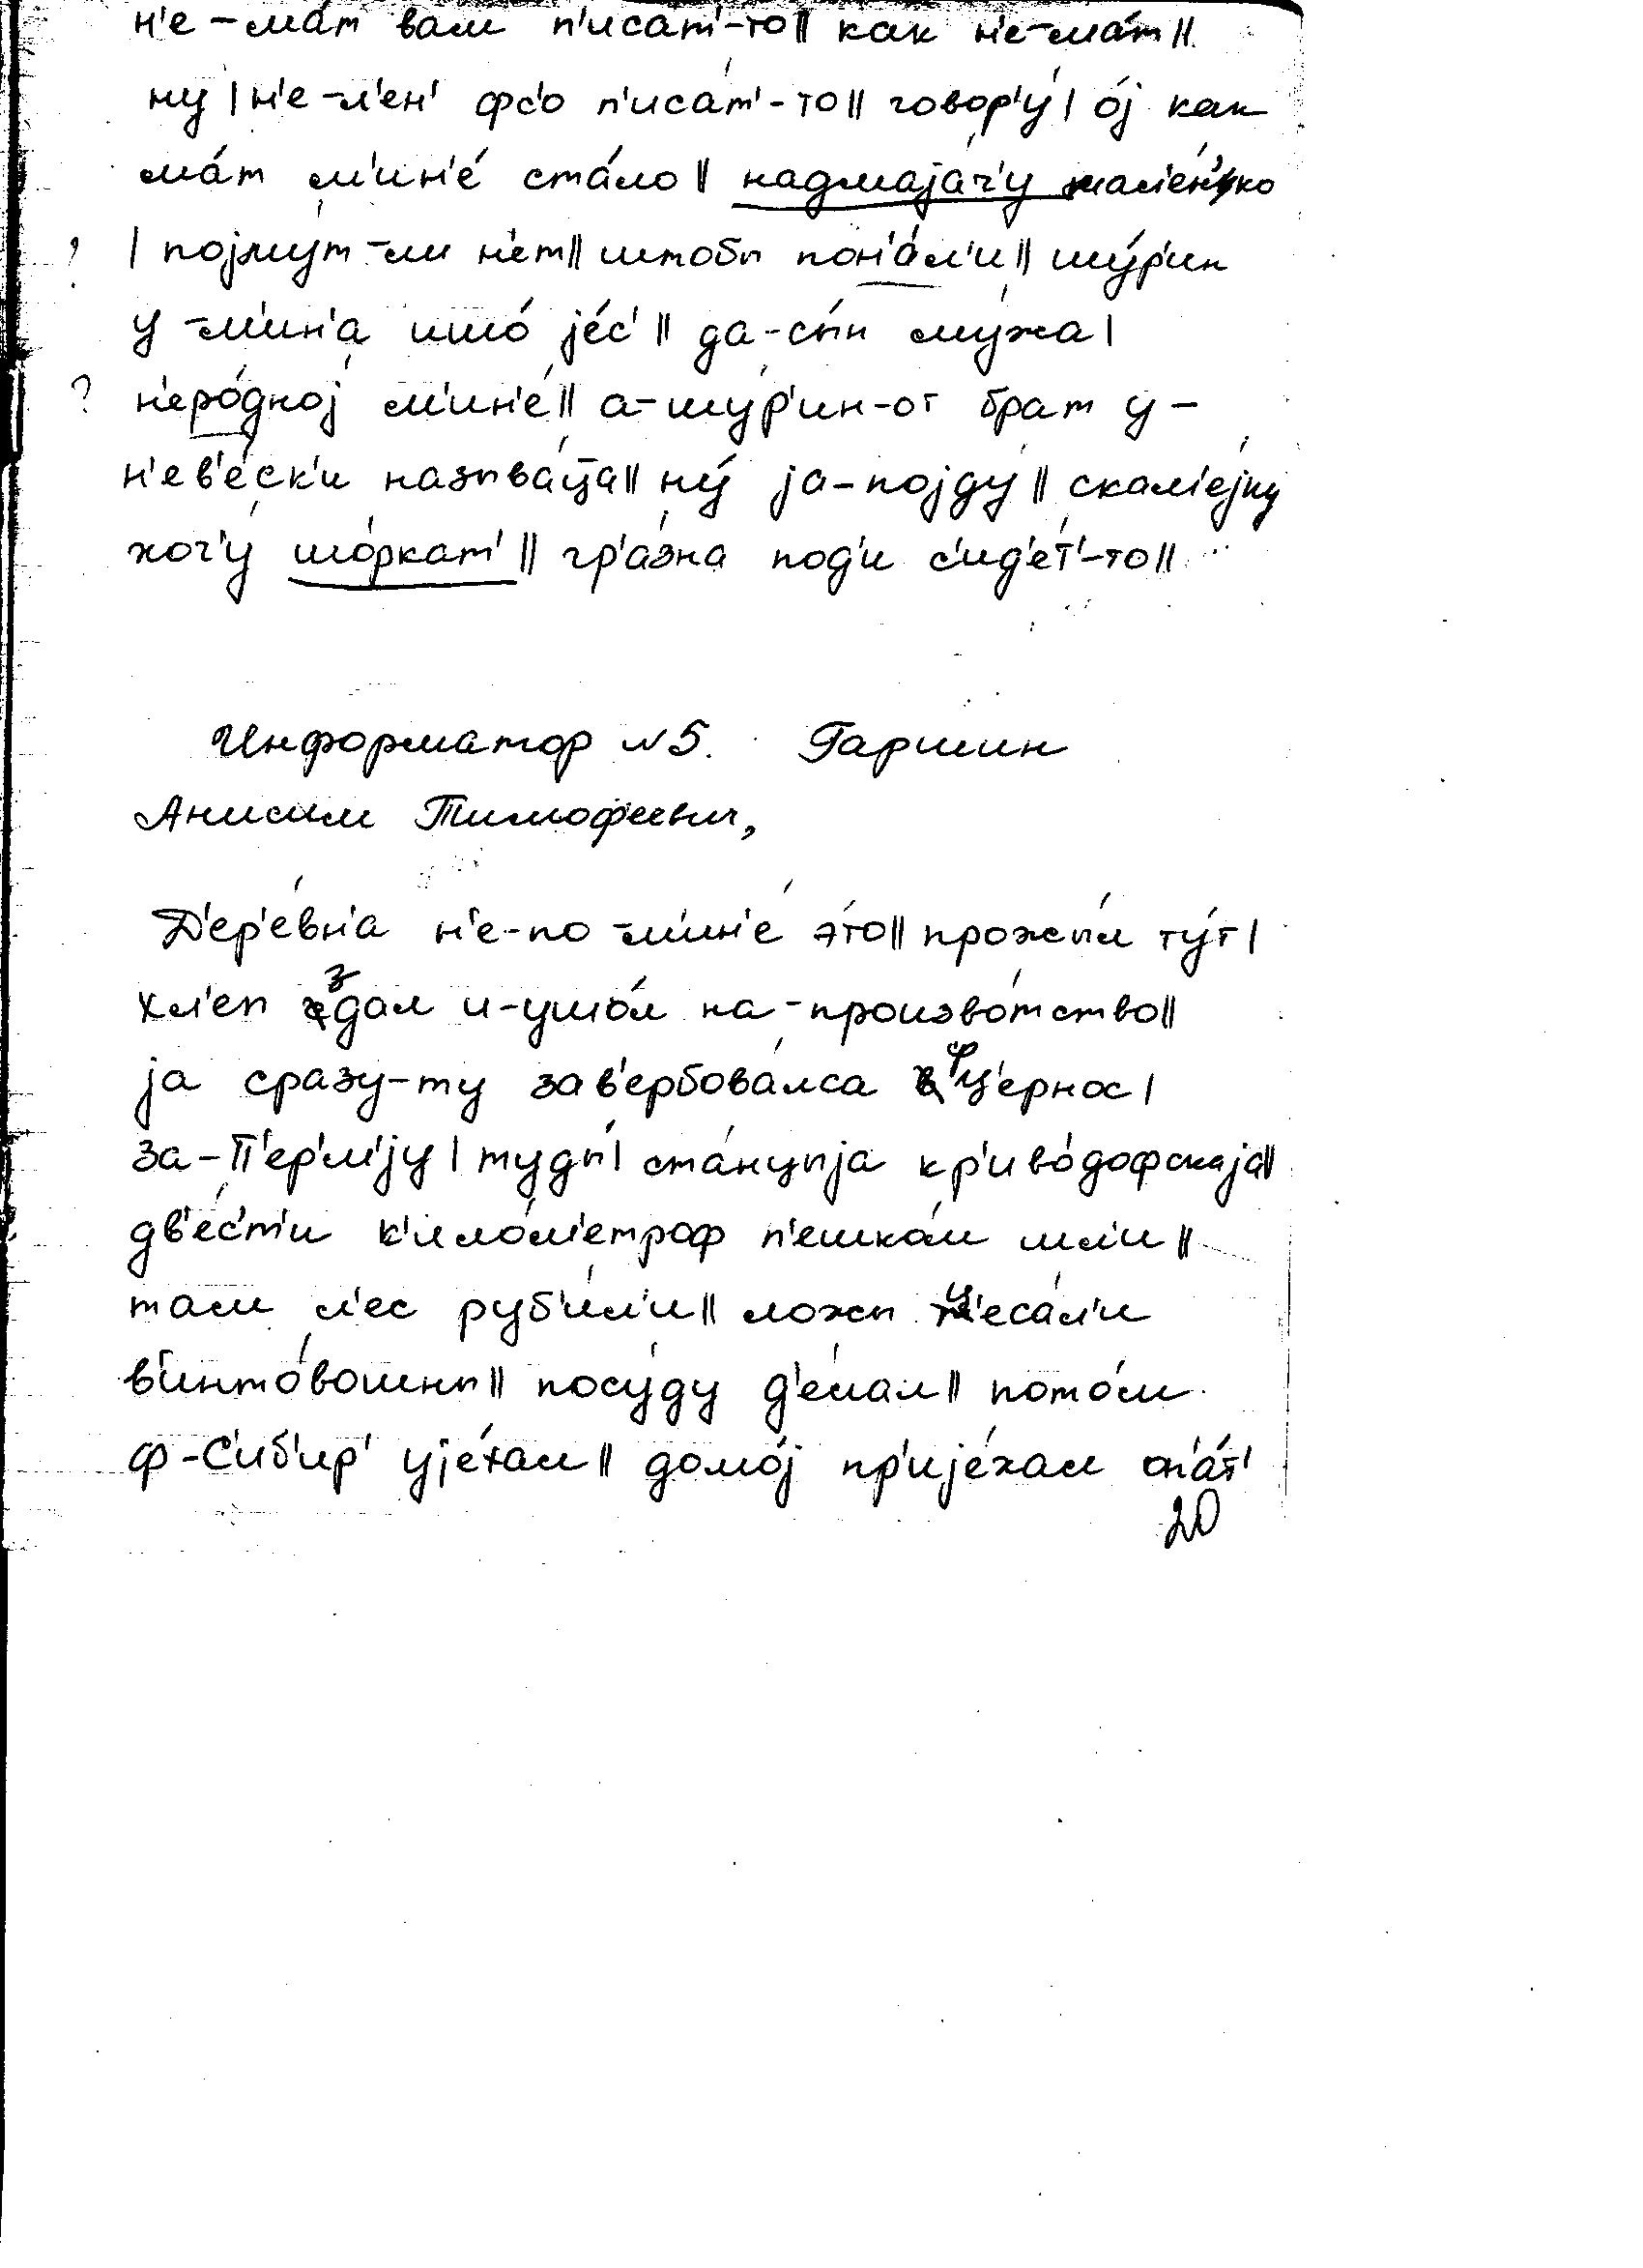 н'е-ма́т вам п'исат'-то‖ как н'е-ма́т‖
ну | н'е-л'ен' фс'о п'иса́т'-то‖ говор'у́ | о́ј как
ма́т м'ин'е́ ста́ло‖ надмаја́ч'у мал'ен'ко
? | појму́т-ли н'ет‖ штобы пон'а́л'и‖ шу́р'ин
у-м'ин'а ишо́ је́с'‖ да-сы́н му́жа |
? н'еро́дној м'ин'е́‖ а-шу́р'ин-от брат у-
н'ев'е́ск'и называ́ца‖ ну́ ја-појду́‖ скам'е́јку
хоч'у́ шо́ркат'‖ гр'а́зна под'и с'ид'е́т'-то‖
Информатор №5. Гаршин
Анисим Тимофеевич,
Д'ер'е́вн'а н'е-по-м'ин'е́ э́то‖ прожы́л ту́т |
хл'еп здал и-ушо́л на-произво́тство‖
ја сразу-ту зав'ербова́лса ф ц'ернос |
за-П'ер'м'јү | туды́ | ста́нцыја кр'иво́дофскаја‖
дв'е́с'т'и к'ило́м'етраф п'ешко́м шл'и‖
там л'ес руб'и́л'и‖ ложы ц'еса́л'и
в'инто́вошны‖ посу́ду д'е́лал‖ пото́м
ф-С'иб'ир' ује́хал‖ домо́ј пр'ије́хал оп'а́т'
20